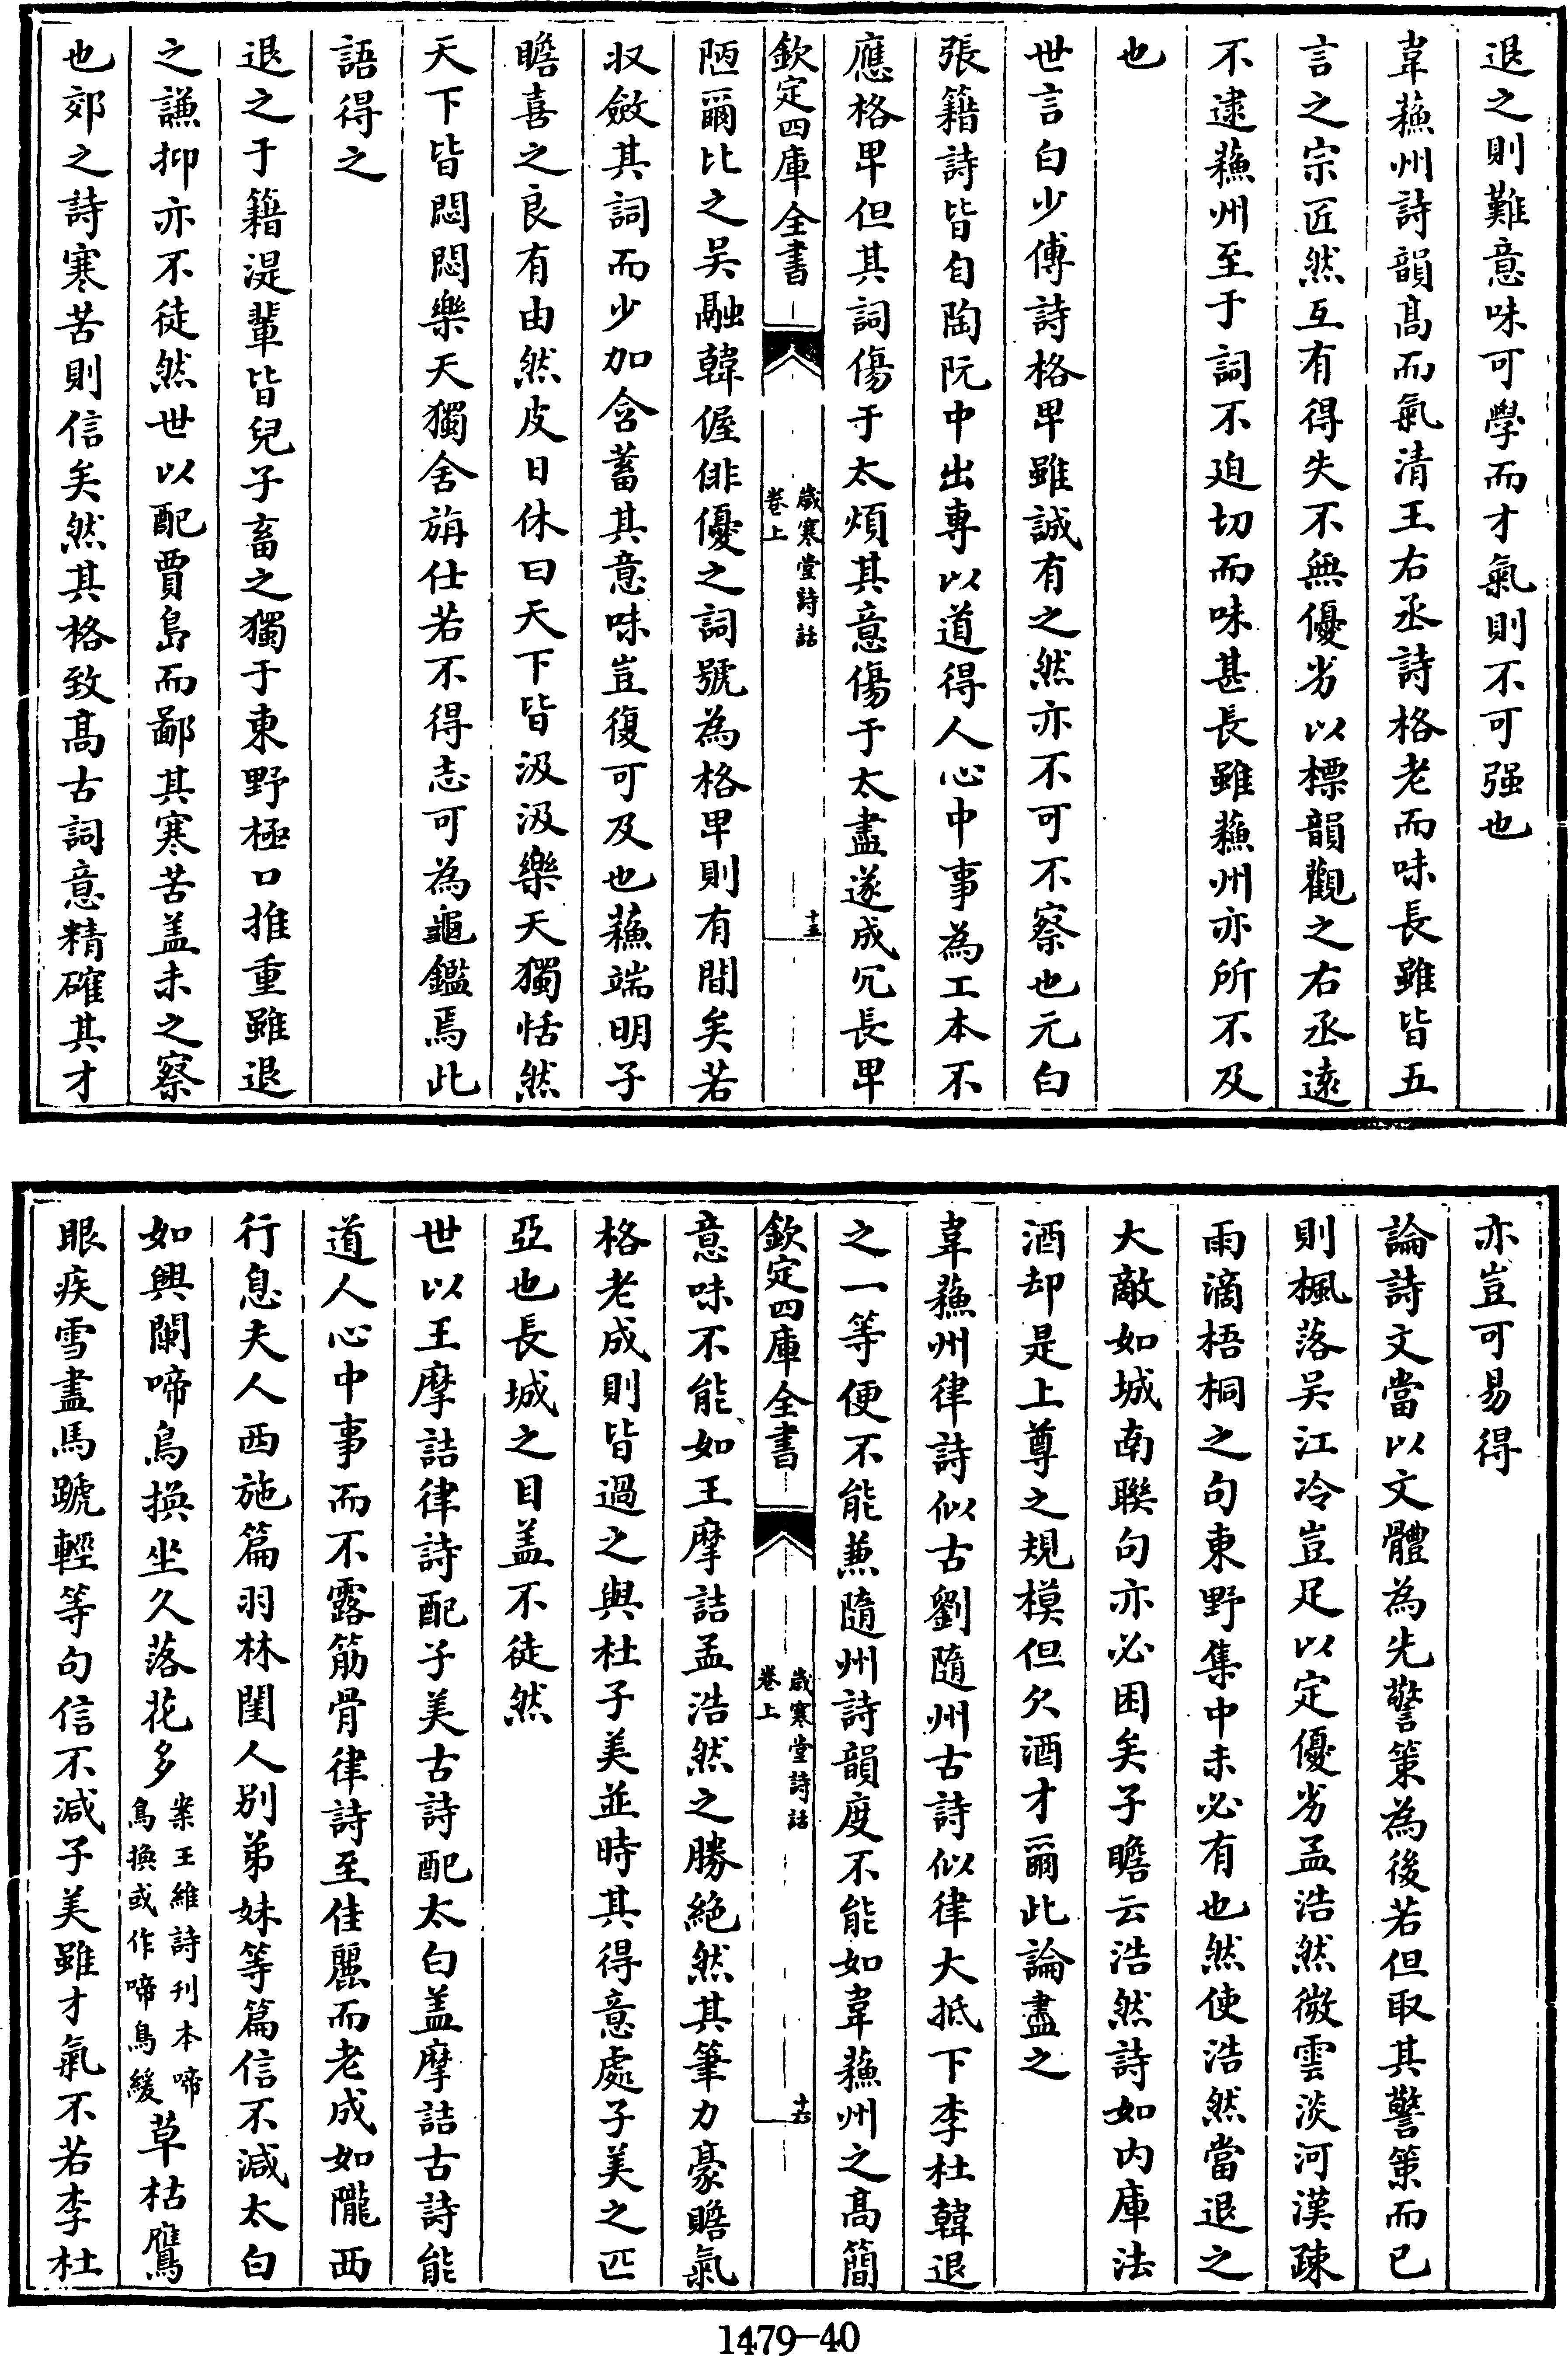 退之則難意味可學而才氣則不可强也
韋蘇州詩韻髙而氣清王右丞詩格老而味長雖皆五
言之宗匠然互有得失不無優劣以標韻觀之右丞逺
不逮蘇州至于詞不迫切而味甚長雖蘇州亦所不及
也
世言白少傅詩格卑雖誠有之然亦不可不察也元白
張籍詩皆自陶阮中出專以道得人心中事為工本不
應格卑但其詞傷于太煩其意傷于太盡遂成冗長卑
欽定四庫全書
歲寒堂詩話
卷上
十五
陋爾比之吴融韓偓俳優之詞號為格卑則有間矣若
収斂其詞而少加含蓄其意味豈復可及也蘇端明子
瞻喜之良有由然皮日休曰天下皆汲汲樂天獨恬然
天下皆悶悶樂天獨舍旃仕若不得志可為龜鑑焉此
語得之
退之于籍湜輩皆兒子畜之獨于東野極口推重雖退
之謙抑亦不徒然世以配賈島而鄙其寒苦盖未之察
也郊之詩寒苦則信矣然其格致髙古詞意精確其才
亦豈可易得
論詩文當以文體為先警策為後若但取其警策而已
則楓落吴江冷豈足以定優劣孟浩然微雲淡河漢踈
雨滴梧桐之句東野集中未必有也然使浩然當退之
大敵如城南聯句亦必困矣子瞻云浩然詩如内庫法
酒却是上尊之規模但欠酒才爾此論盡之
韋蘇州律詩似古劉隨州古詩似律大抵下李杜韓退
之一等便不能兼隨州詩韻度不能如韋蘇州之髙簡
欽定四庫全書
歲寒堂詩話
卷上
十六
意味不能如王摩詰孟浩然之勝絶然其筆力豪贍氣
格老成則皆過之與杜子美並時其得意處子美之匹
亞也長城之目盖不徒然
世以王摩詰律詩配子美古詩配太白盖摩詰古詩能
道人心中事而不露筋骨律詩至佳麗而老成如隴西
行息夫人西施篇羽林閨人别弟妹等篇信不減太白
如興闌啼鳥換坐久落花多案王維詩刋本啼鳥換或作啼鳥緩草枯鷹
眼疾雪盡馬蹏輕等句信不減子美雖才氣不若李杜
1479—40